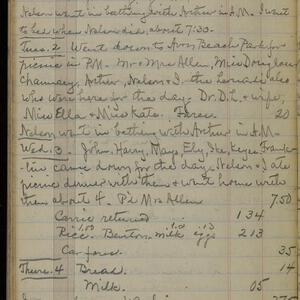 Nelson went in bathing with Arthur in A.M. I went
to bed when Nelson did, about 7:30.
Tues. 2 Went down to Avon Beach Park for
picnic in P.M. Mr & Mrs Allen, Miss Douglass
Chauncey, Arthur, Nelson & I. the
who were here for the day. Dr. D.L. & wife,
Miss Ella & Miss Kate. Fares 20
Nelson went in bathing with Arthur in A.M.
Wed. 3. John, Harry, May, Ely,
came down for the day. Nelson & I ate
picnic dinner with them & went home with
them about 4. P'd Mrs Allen 7.50
Carrie returned 1 34
Rice. Benton milk eggs 2 13
Car fares 35
Thurs. 4 Bread 14
Milk. 05